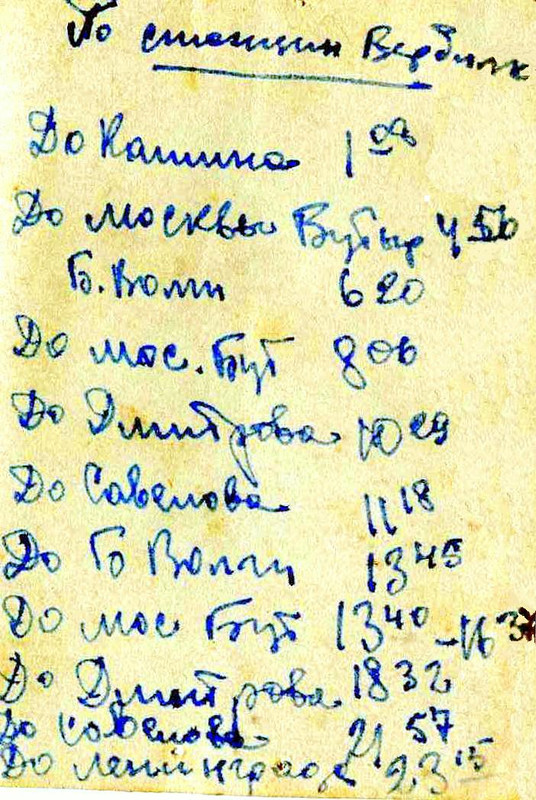 По станции Вербилк
До Кашина 1 08
До Москвы Бутыр 4 56
Б. Волги 6 20
До мос. Бут 8 06
До Дмитрова 10 29
До Савелова 11 18
До Б Волги 13 45
До мос Бут 13 40 - 16
До Дмитрова 18 32
До Савелова 21 57
До Ленинграда 23 15